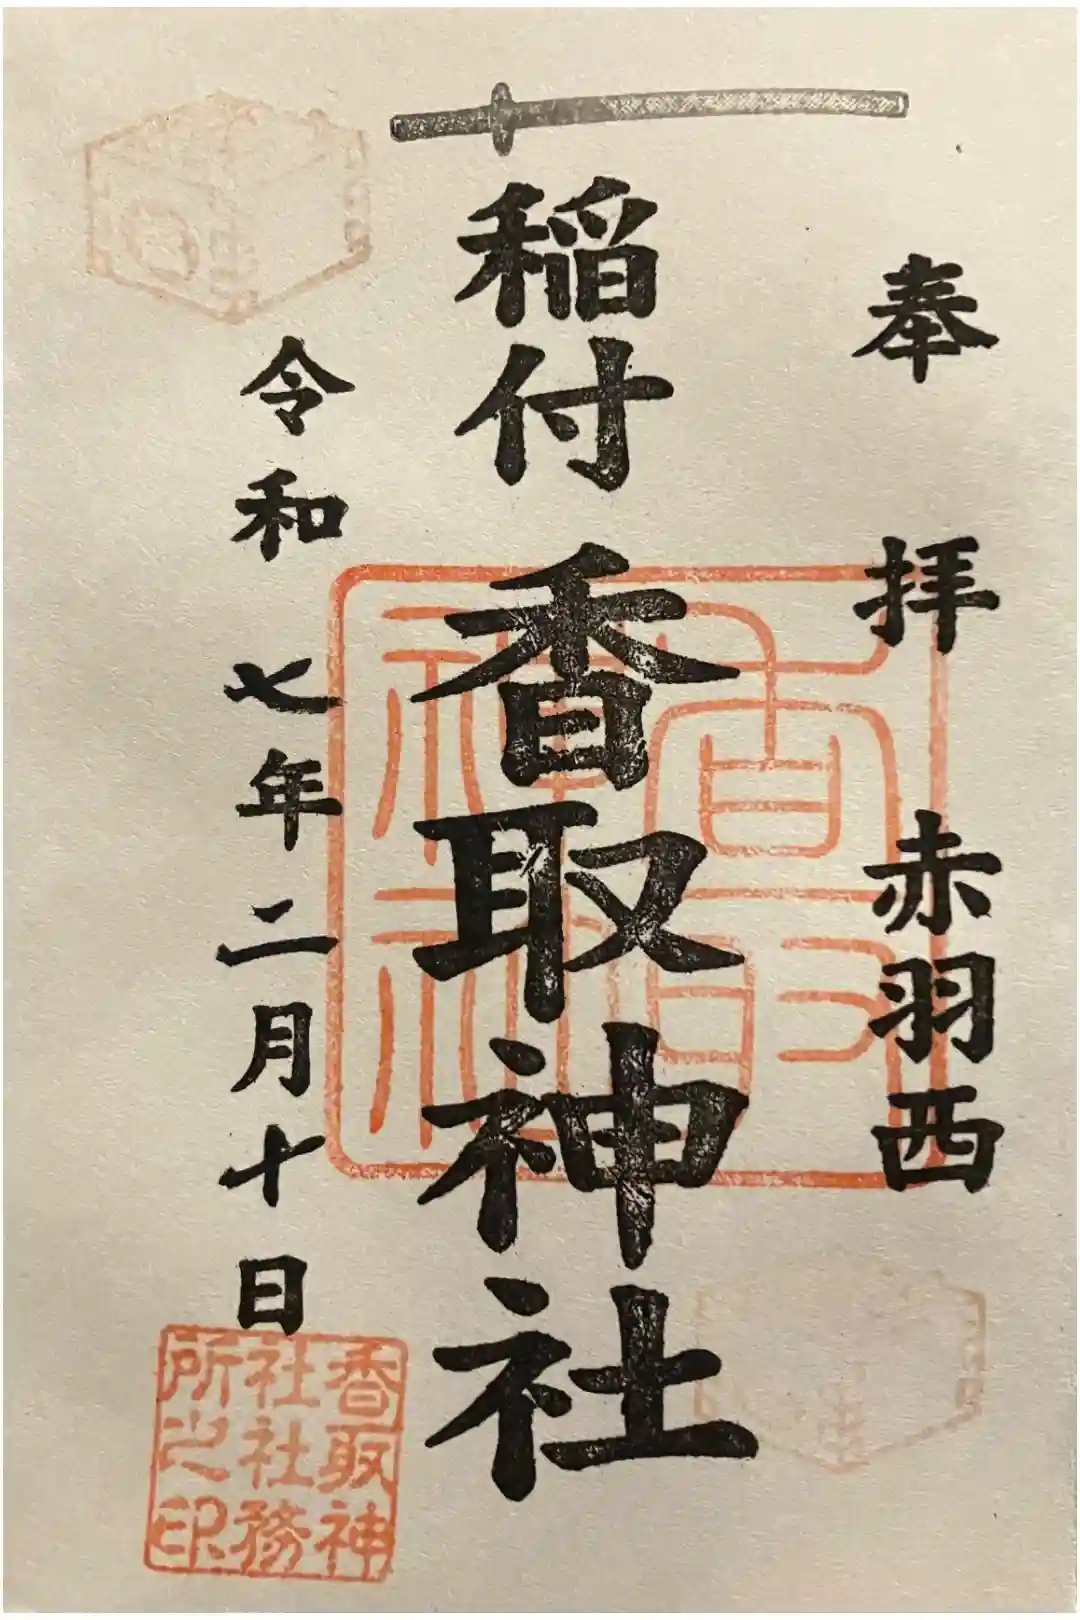 奉拝 赤羽西
稲付香取神社
令和七年二月十日
香取神
社社務
所之印